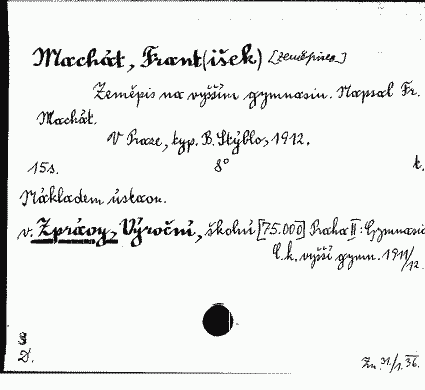 Machát, Frant(išek) [zeměpisec]
Zeměpis na vyšším gymnasiu. Napsal Fr.
Machát.
V Praze, typ. B. Stýblo, 1912.
15 s. 8° k.
Nákladem ústavu.
v. Zprávy, Výroční, školní [75.000] Praha II: Gymnasia
C.k. vyšší gymn. 1911/12.
D.
Zn. 31/1. 36.